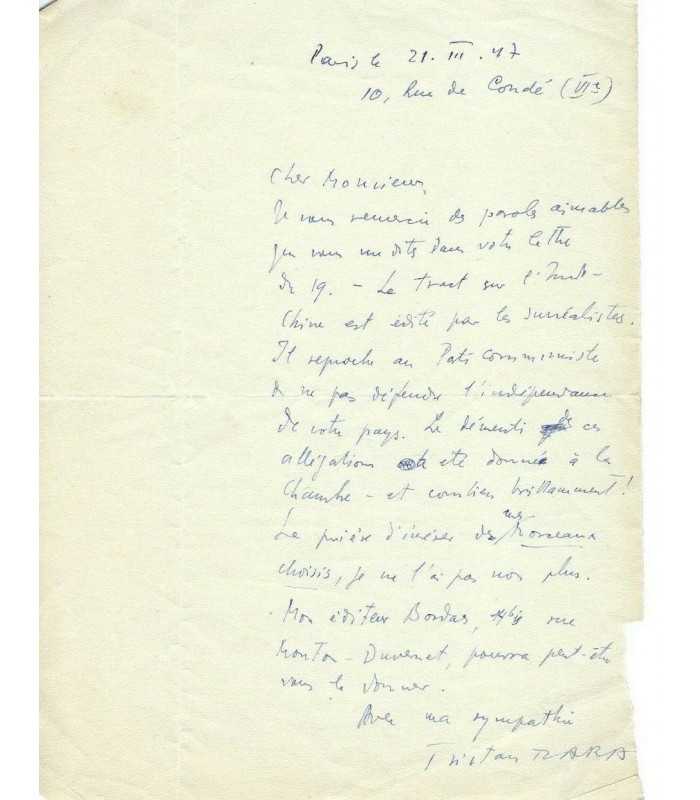 Paris le 21. III. 47
10, Rue de Condé (VIe)
Cher Monsieur,
Je vous remercie des paroles aimables
que vous me dites dans votre lettre
du 19. – Le tract sur l'Indo-
Chine est édité par les surréalistes.
Il reproche au Parti communiste
de ne pas défendre l'indépendance
de votre pays. Le démenti de ces
allégations a été donné à la
Chambre – et combien brillamment!
Le prière d'insérer de mes Morceaux
choisis, je ne l'ai pas non plus.
Mon éditeur Bordas, bis rue
Mouton-Duvernet, pourra peut-être
vous le donner.
Avec ma sympathie
Tristan TZARA